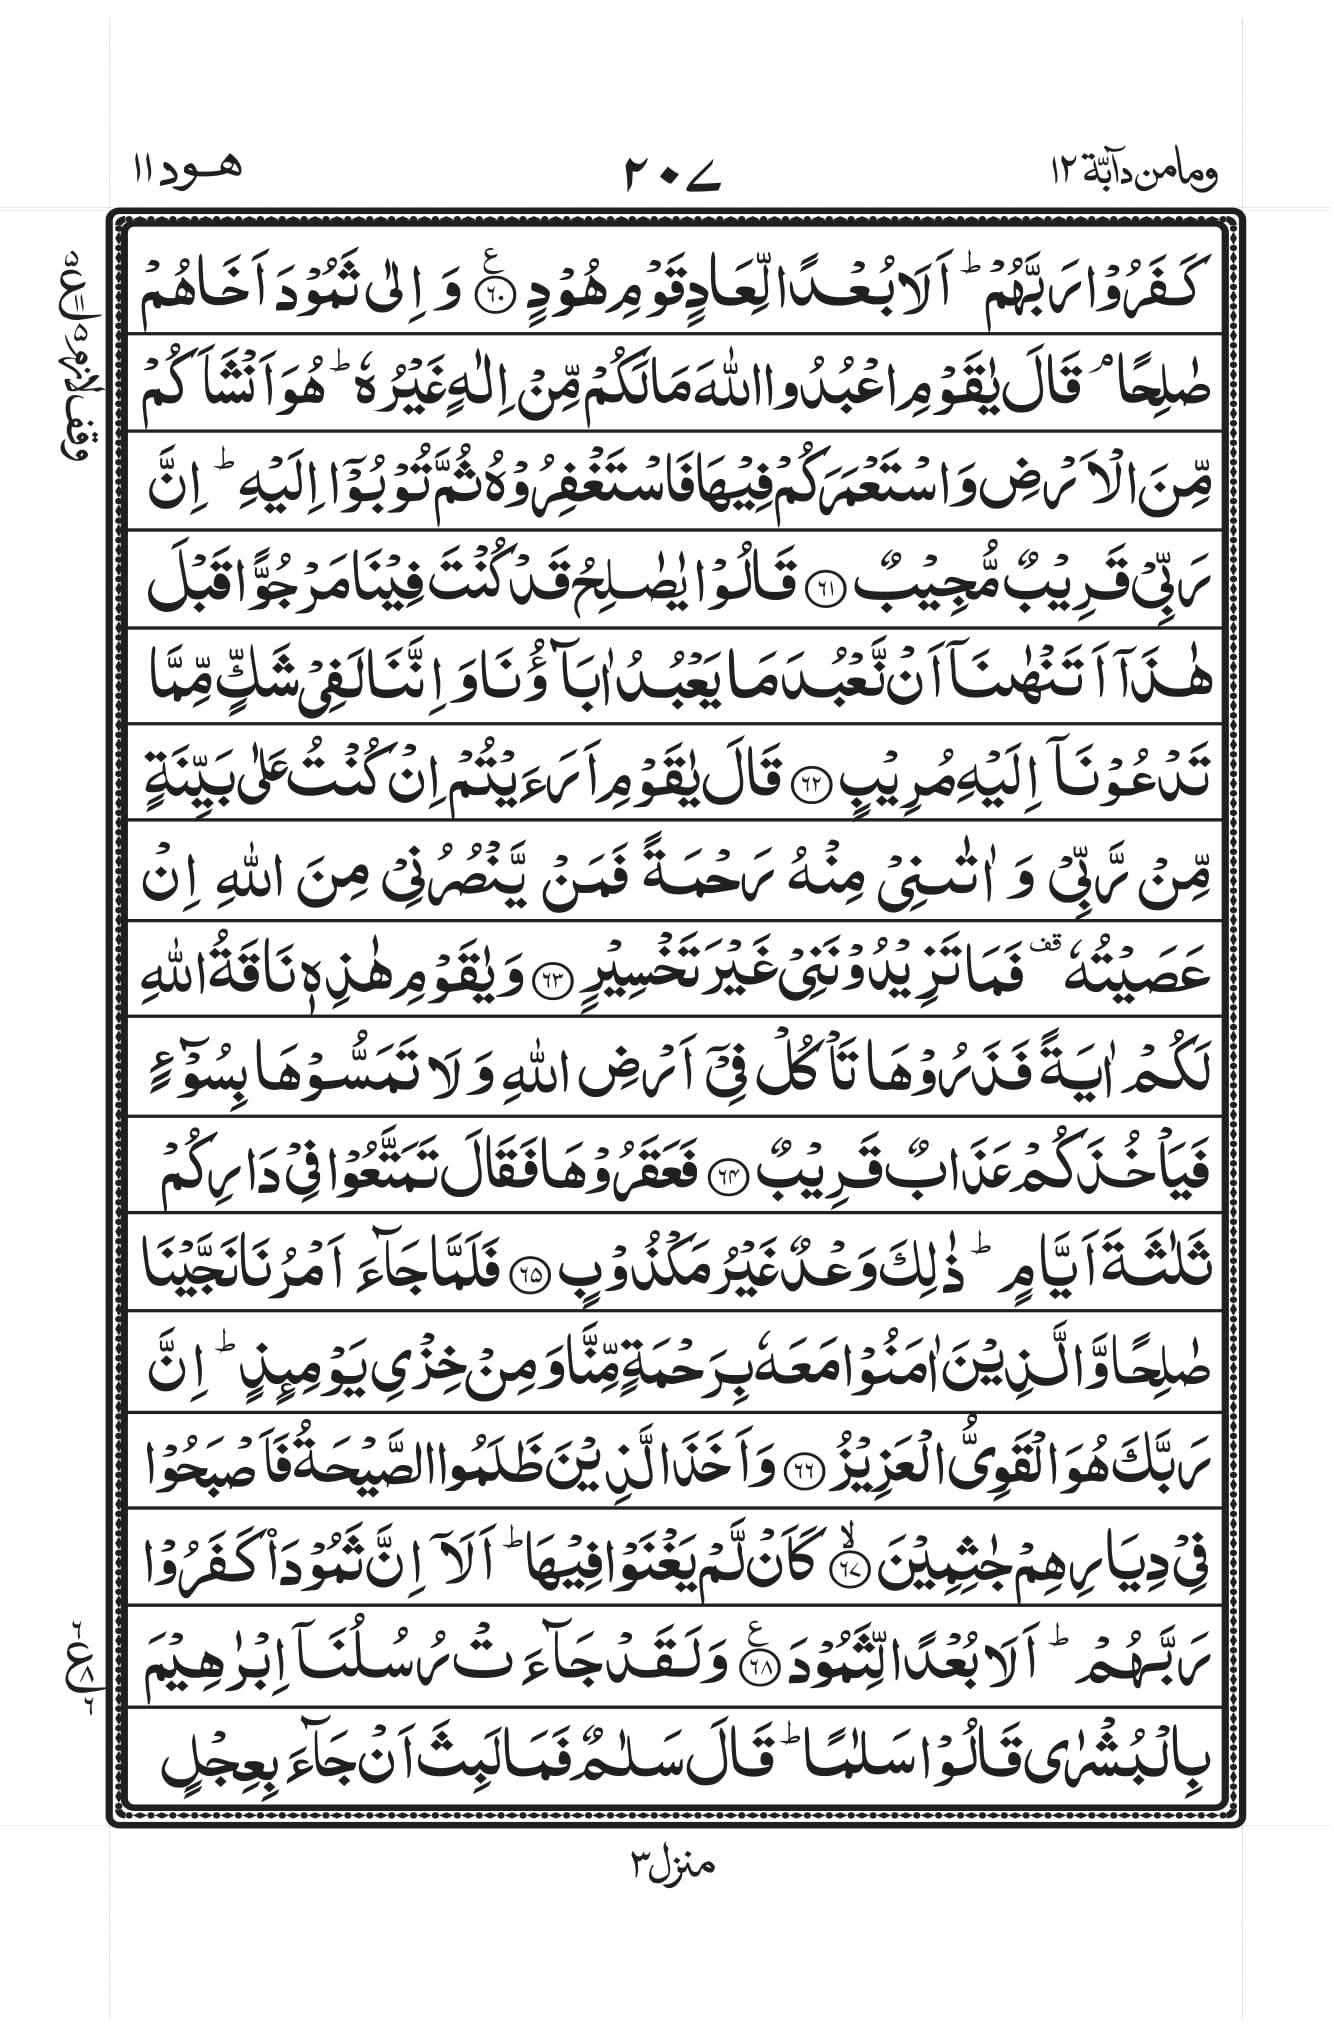 ومامن دآبّة ١٢
٢٠٧
هود ١١
كَفَرُوْا رَبَّهُمْ ؕ اَلَا بُعْدًا لِّعَادٍ قَوْمِ هُوْدٍ ۧ‏ ﴿۶۰﴾ وَ اِلٰى ثَمُوْدَ اَخَاهُمْ
صٰلِحًا ۘ قَالَ يٰقَوْمِ اعْبُدُوا اللّٰهَ مَا لَكُمْ مِّنْ اِلٰهٍ غَيْرُهٗ ؕ هُوَ اَنْشَاَكُمْ
مِّنَ الْاَرْضِ وَاسْتَعْمَرَكُمْ فِيْهَا فَاسْتَغْفِرُوْهُ ثُمَّ تُوْبُوْۤا اِلَيْهِ ؕ اِنَّ
رَبِّىْ قَرِيْبٌ مُّجِيْبٌ ﴿۶۱﴾ قَالُوْا يٰصٰلِحُ قَدْ كُنْتَ فِيْنَا مَرْجُوًّا قَبْلَ
هٰذَاۤ اَتَنْهٰىنَاۤ اَنْ نَّعْبُدَ مَا يَعْبُدُ اٰبَآؤُنَا وَ اِنَّنَا لَفِىْ شَكٍّ مِّمَّا
تَدْعُوْنَاۤ اِلَيْهِ مُرِيْبٍ ﴿۶۲﴾ قَالَ يٰقَوْمِ اَرَءَيْتُمْ اِنْ كُنْتُ عَلٰى بَيِّنَةٍ
مِّنْ رَّبِّىْ وَ اٰتٰىنِىْ مِنْهُ رَحْمَةً فَمَنْ يَّنْصُرُنِىْ مِنَ اللّٰهِ اِنْ
عَصَيْتُهٗ قف فَمَا تَزِيْدُوْنَنِىْ غَيْرَ تَخْسِيْرٍ ﴿۶۳﴾ وَيٰقَوْمِ هٰذِهٖ نَاقَةُ اللّٰهِ
لَكُمْ اٰيَةً فَذَرُوْهَا تَاْكُلْ فِىْۤ اَرْضِ اللّٰهِ وَلَا تَمَسُّوْهَا بِسُوْٓءٍ
فَيَاْخُذَكُمْ عَذَابٌ قَرِيْبٌ ﴿۶۴﴾ فَعَقَرُوْهَا فَقَالَ تَمَتَّعُوْا فِىْ دَارِكُمْ
ثَلٰثَةَ اَيَّامٍ ؕ ذٰلِكَ وَعْدٌ غَيْرُ مَكْذُوْبٍ ﴿۶۵﴾ فَلَمَّا جَآءَ اَمْرُنَا نَجَّيْنَا
صٰلِحًا وَّالَّذِيْنَ اٰمَنُوْا مَعَهٗ بِرَحْمَةٍ مِّنَّا وَمِنْ خِزْىِ يَوْمِئِذٍ ؕ اِنَّ
رَبَّكَ هُوَ الْقَوِىُّ الْعَزِيْزُ ﴿۶۶﴾ وَاَخَذَ الَّذِيْنَ ظَلَمُوا الصَّيْحَةُ فَاَصْبَحُوْا
فِىْ دِيَارِهِمْ جٰثِمِيْنَ ۙ‏ ﴿۶۷﴾ كَاَنْ لَّمْ يَغْنَوْا فِيْهَا ؕ اَلَاۤ اِنَّ ثَمُوْدَا۟ كَفَرُوْا
رَبَّهُمْ ؕ اَلَا بُعْدًا لِّثَمُوْدَ ۧ‏ ﴿۶۸﴾ وَلَقَدْ جَآءَتْ رُسُلُنَاۤ اِبْرٰهِيْمَ
بِالْبُشْرٰى قَالُوْا سَلٰمًا ؕ قَالَ سَلٰمٌ فَمَا لَبِثَ اَنْ جَآءَ بِعِجْلٍ
۵ ع ۱۱ ۵
وقف لازم
۶ ع ۸ ۶
منزل ٣